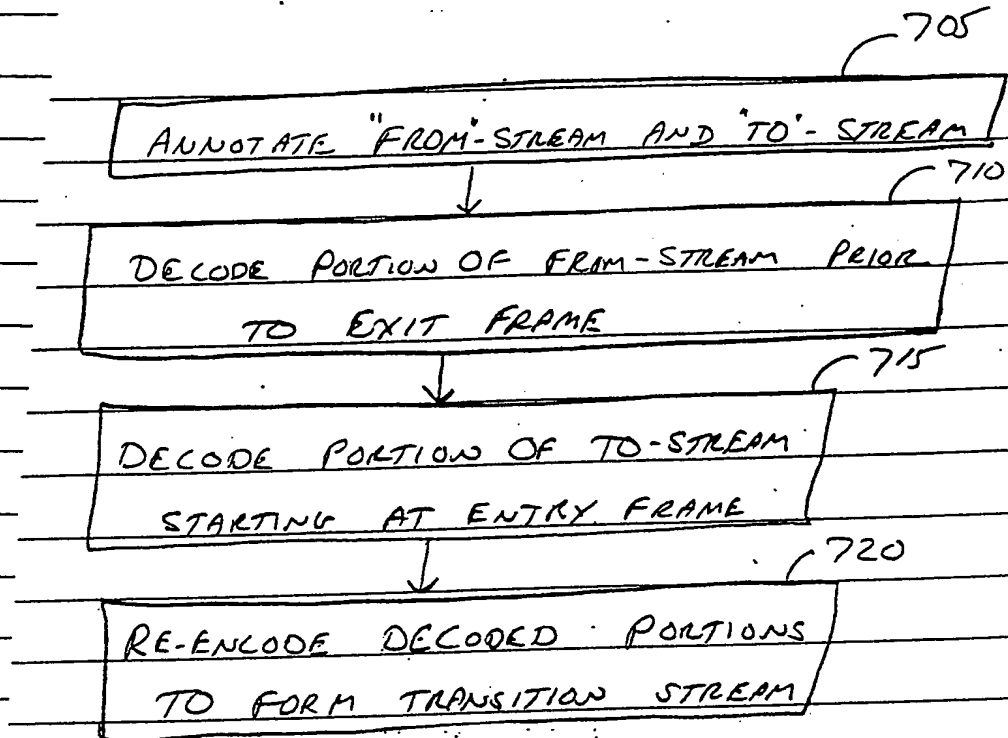 705
ANNOTATE "FROM"-STREAM AND "TO"-STREAM
710
DECODE PORTION OF FROM-STREAM PRIOR
TO EXIT FRAME
715
DECODE PORTION OF TO-STREAM
STARTING AT ENTRY FRAME
720
RE-ENCODE DECODED PORTIONS
TO FORM TRANSITION STREAM